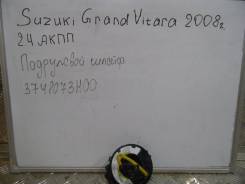 Suzuki Grand Vitara 2008г.
2.4 АКПП
Подрулевой шлейф
3748073H00